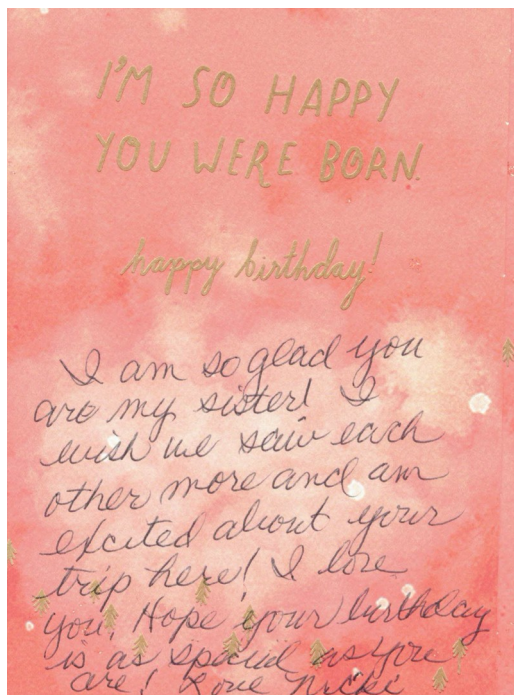 I'M SO HAPPY
YOU WERE BORN.
happy birthday!
I am so glad you
are my sister! I
wish we saw each
other more and am
excited about your
trip here! I love
you! Hope your birthday
is as special as you
are! Love Nicki